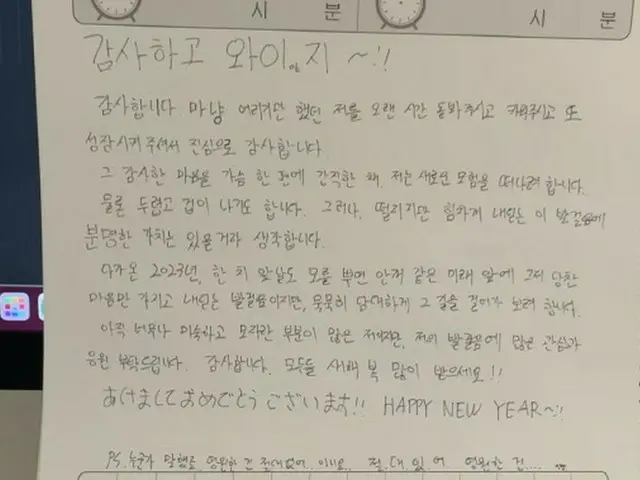 시 분 시 분
감사하고 와이 지 ~!!
감사합니다 마냥 어리기만 했던 저를 오랜 시간 돌봐주시고 키워주시고 또
성장시켜 주셔서 진심으로 감사합니다
그 감사한 마음을 가슴 한 편에 간직한 채, 저는 새로운 모험을 떠나려 합니다.
물론 두렵고 겁이 나기도 합니다. 그러나, 떨리지만 힘차게 내딛는 이 발걸음에
분명한 가치는 있을거라 생각합니다.
다가온 2023년, 한 치 앞날도 모를 뿌연 안개 같은 미래 앞에 그저 당찬
마음만 가지고 내딛는 발걸음이지만, 묵묵히 담대하게 그 길을 걸어가 보려 합니다.
아직 너무나 미숙하고 모자란 부분이 많은 저이지만, 저의 발걸음에 많은 관심과
응원 부탁드립니다. 감사합니다. 모두들 새해 복 많이 받으세요!!
あけましておめでとうございます!! HAPPY NEW YEAR~!!
PS. 누군가 말했죠 영원한 건 절대없어.. 절.대.있.어 영원한 건....